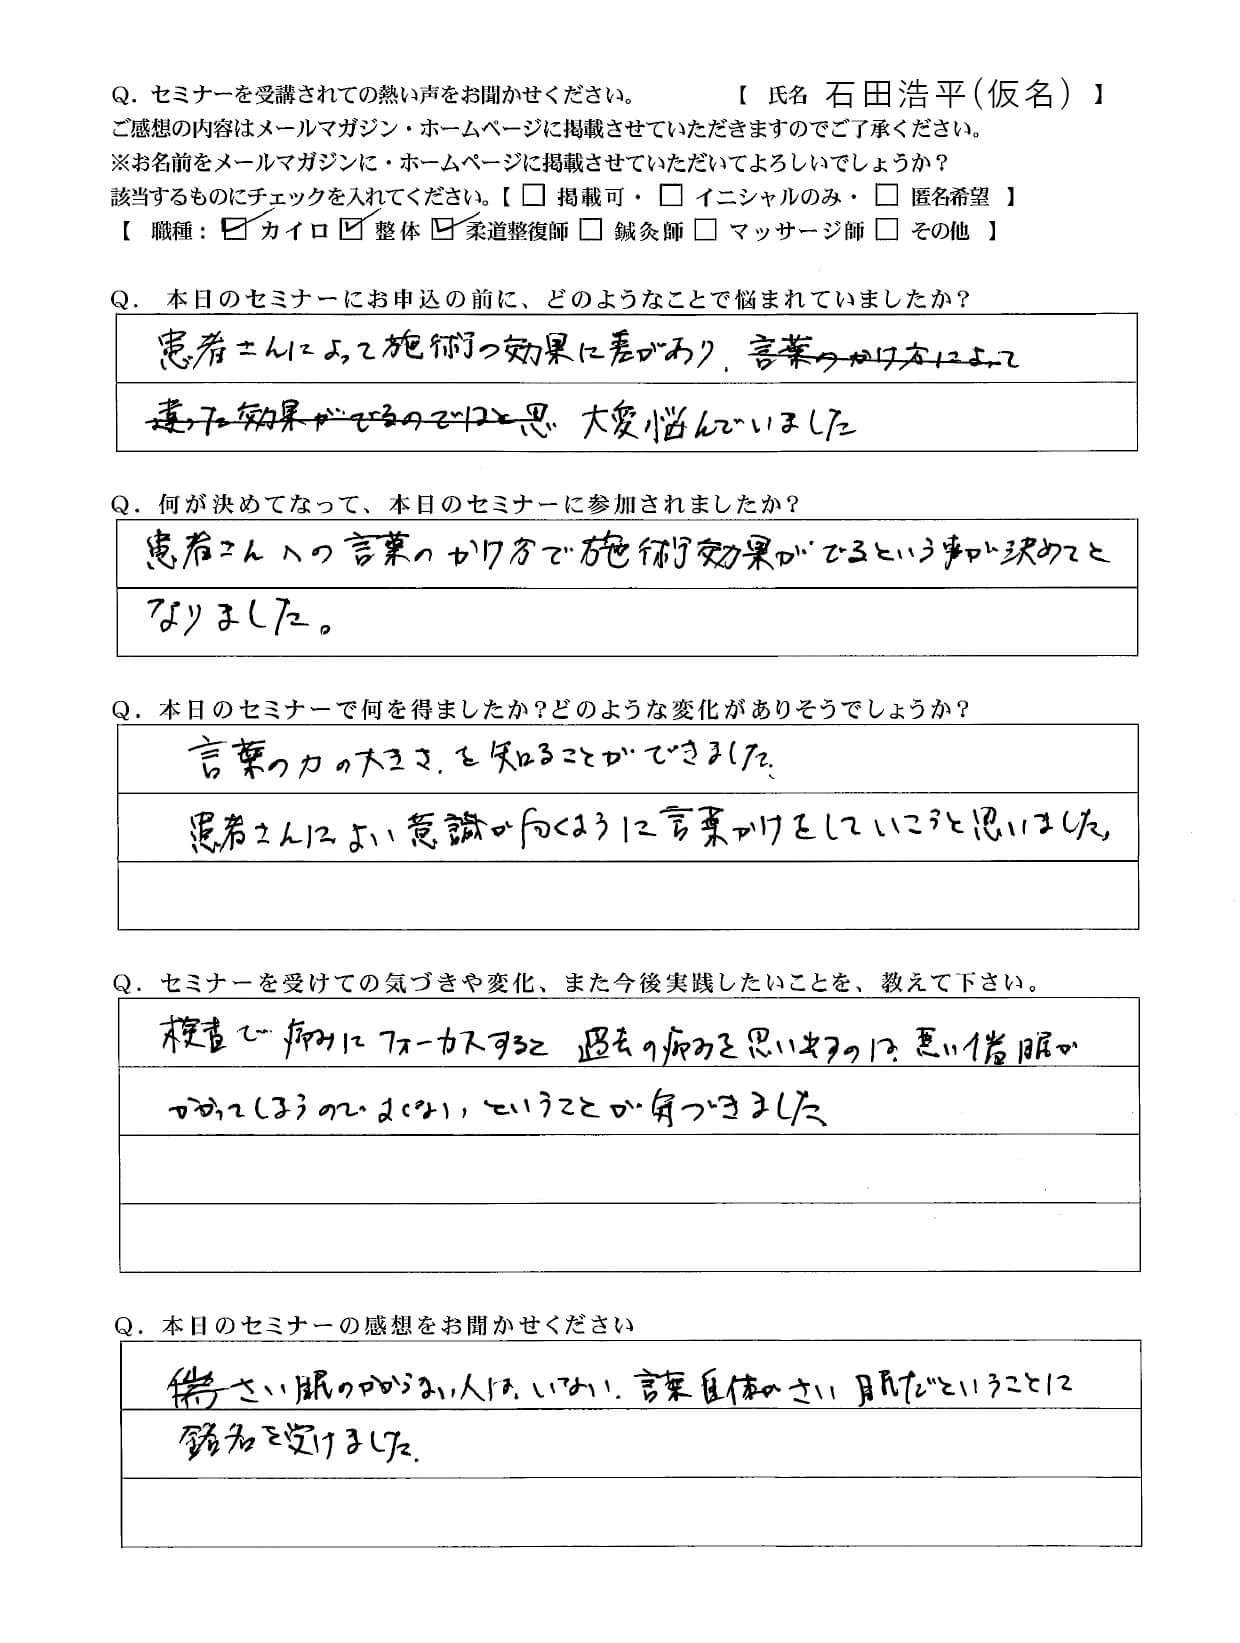 Q. セミナーを受講されての熱い声をお聞かせください。　【 氏名 石田浩平(仮名) 】
ご感想の内容はメールマガジン・ホームページに掲載させていただきますのでご了承ください。
※お名前をメールマガジンに・ホームページに掲載させていただいてよろしいでしょうか？
該当するものにチェックを入れてください。【 □ 掲載可・ □ イニシャルのみ・ □ 匿名希望 】
【 職種： ☑ カイロ ☑ 整体 ☑ 柔道整復師 □ 鍼灸師 □ マッサージ師 □ その他 】
Q. 本日のセミナーにお申込の前に、どのようなことで悩まれていましたか？
患者さんによって施術の効果に差があり、言葉のかけ方によって
違った効果がでるのではと思 大変悩んでいました
Q. 何が決めてなって、本日のセミナーに参加されましたか？
患者さんへの言葉のかけ方で施術効果がでるという事が決めてと
なりました。
Q. 本日のセミナーで何を得ましたか？どのような変化がありそうでしょうか？
言葉の力の大きさ、を知ることができました、
患者さんによい意識が向くように言葉かけをしていこうと思いました。
Q. セミナーを受けての気づきや変化、また今後実践したいことを、教えて下さい。
検査で痛みにフォーカスすると 過去の痛みを思い出すのは、悪い催眠が
かかってしまうのでよくない、ということが気づきました
Q. 本日のセミナーの感想をお聞かせください
さい眠のかからない人は、いない、言葉自体がさい眠だということに
銘名を受けました。